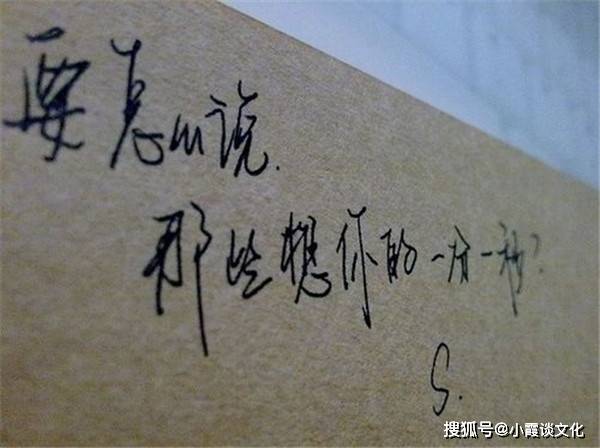 要怎么说.
那些想你的一分一秒?
S.
搜狐号@小霞谈文化